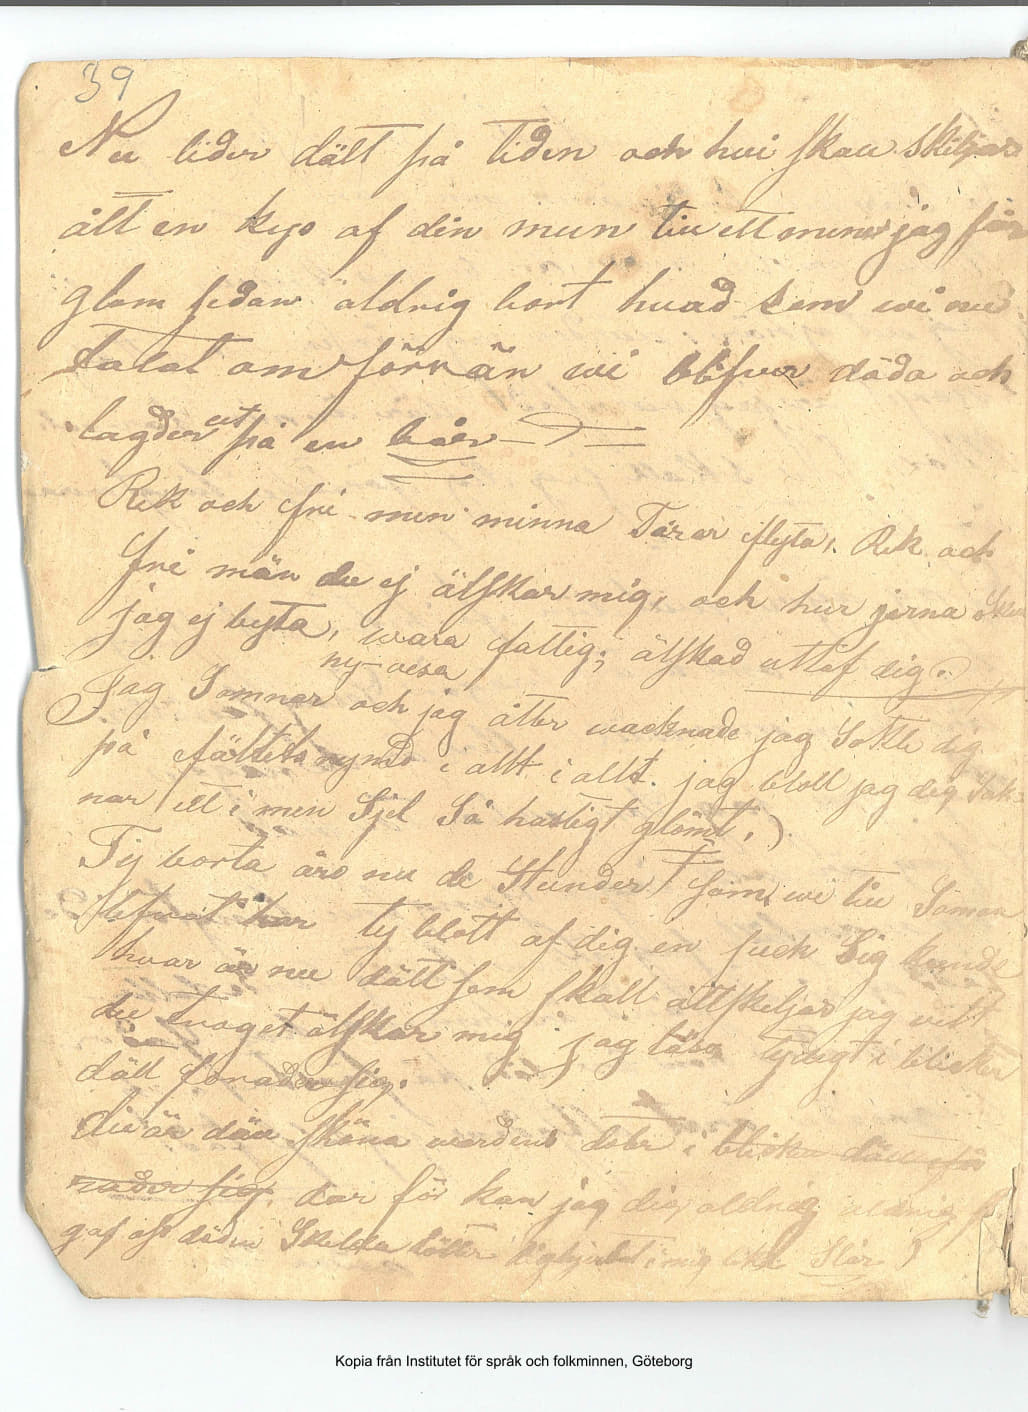 39
Nu lider dätt på tiden och hwi skau skiljas
ått en kys af din mun tiu ett minne jag får
glöm sedan aldrig bort hwad som wi nu
talat om förr än wi blifver döda och
lagder ut på en bår
Rik och fri men minna Tårar flyta, Rik och
fri män du ej älskar mig, och hur jerna skulle
jag ej byta, wara fattig; älskad utaf dig.
ny-visa
Jag Somnar och jag åtter wacknade jag Sökte dig
på fältets rymd i allt i allt. jag blott jag dig Sak
nar ett i men Sjel Så hastigt glömt.)
Tej borta äro nu de Stunder Som wi tiu Saman
lefwat har ty blott af dig en suck Sig kunde
hvar är nu dätt som skall åttskiljas jag vet
du troget älskar mig jag läsa tydligt i blicken
dätt forrader sig.
diu är däu sköna werdens debr i blicken dätt för
rader sig, dar för kan jag dig aldrig aldrig
gaf oss döden Skilda dig hjertat i mig ikke Slår)
Kopia från Institutet för språk och folkminnen, Göteborg